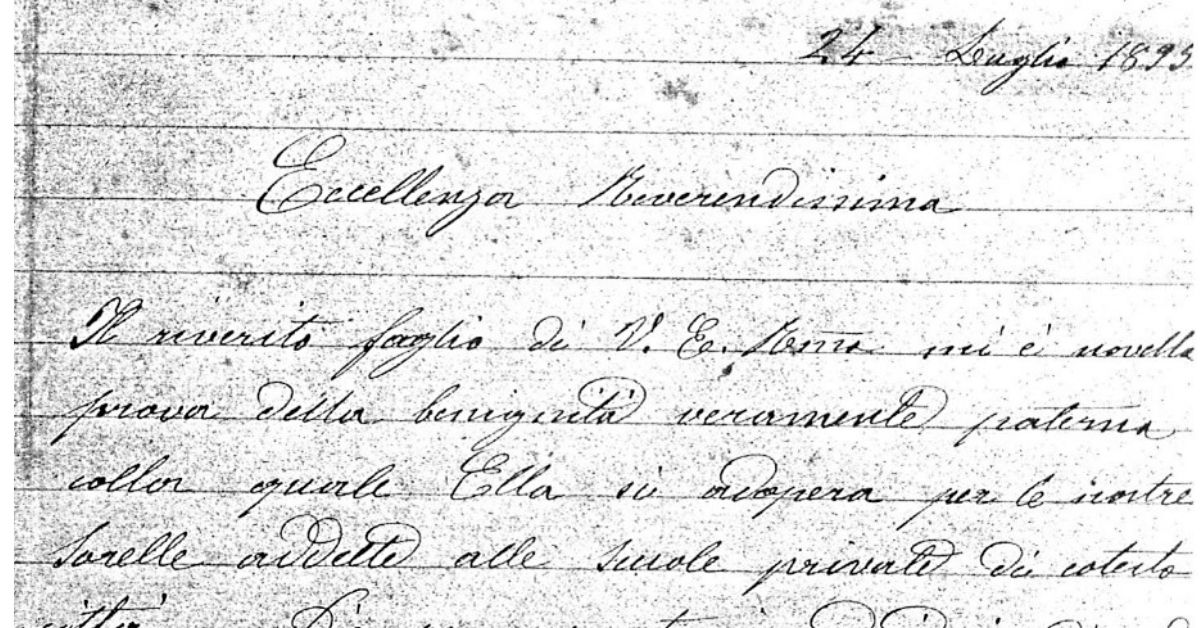 24 - Luglio 1893
Eccellenza Reverendissima
Il riverito foglio di V. E. Rma mi è novella
prova della benignità veramente paterna
colla quale Ella si adopera per le nostre
Sorelle addette alle scuole private di cotesta
città